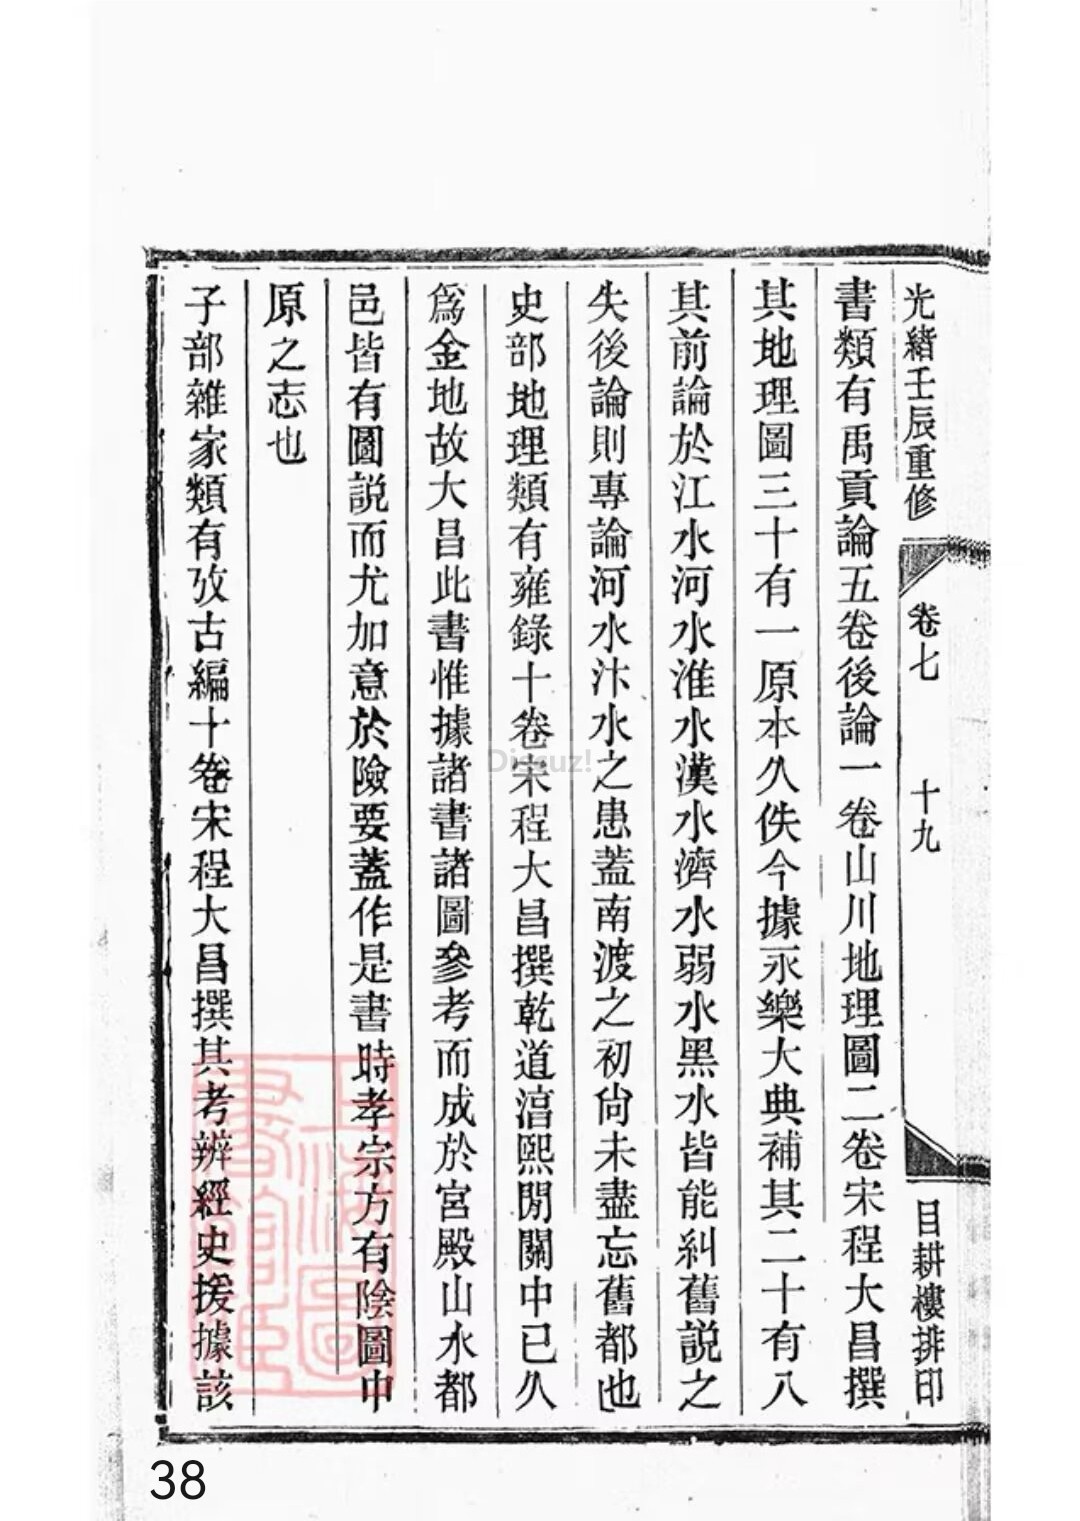 光緒壬辰重修 卷七 十九 目耕樓排印
書類有禹貢論五卷後論一卷山川地理圖二卷宋程大昌撰
其地理圖三十有一原本久佚今據永樂大典補其二十有八
其前論於江水河水淮水漢水濟水弱水黑水皆能糾舊説之
失後論則專論河水汴水之患蓋南渡之初尙未盡忘舊都也
史部地理類有雍錄十卷宋程大昌撰乾道湻熙閒關中已久
爲金地故大昌此書惟據諸書諸圖參考而成於宮殿山水都
邑皆有圖説而尤加意於險要蓋作是書時孝宗方有陰圖中
原之志也
子部雜家類有攷古編十卷宋程大昌撰其考辨經史援據該
上海圖書館藏
Discuz!
38